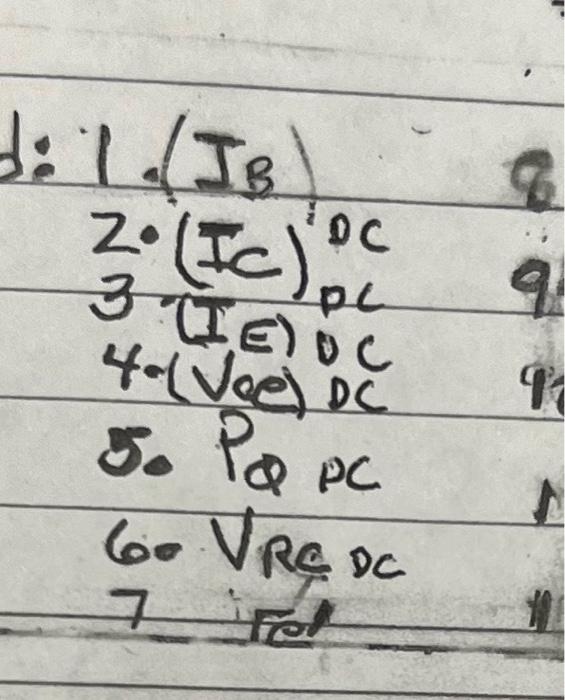 d: 1. (IB) DC 8
2. (IC) DC 9
3 (IE) DC
4. (Vce) DC
5. PQ DC
6. VRC DC
7 re' 11